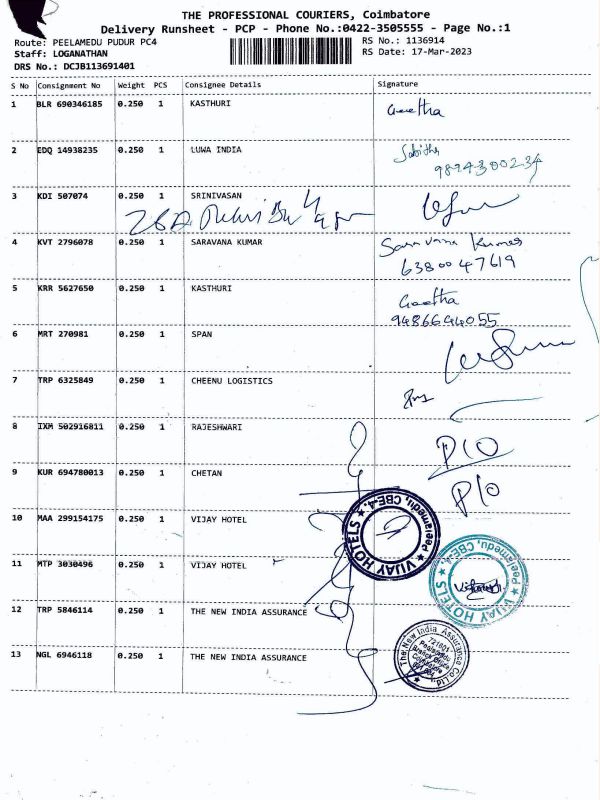 THE PROFESSIONAL COURIERS, Coimbatore
Delivery Runsheet - PCP - Phone No.:0422-3505555 - Page No.:1
Route: PEELAMEDU PUDUR PC4
RS No.: 1136914
Staff: LOGANATHAN
RS Date: 17-Mar-2023
DRS No.: DCJB113691401
S No Consignment No Weight PCS Consignee Details Signature
1 BLR 690346185 0.250 1 KASTHURI Geetha
2 EDQ 14938235 0.250 1 LUWA INDIA Sabitha
9894300234
3 KDI 507074 0.250 1 SRINIVASAN
4 KVT 2796078 0.250 1 SARAVANA KUMAR Saravana Kumar
6380047619
5 KRR 5627650 0.250 1 KASTHURI Geetha
9486694055
6 MRT 270981 0.250 1 SPAN
7 TRP 6325849 0.250 1 CHEENU LOGISTICS
8 IXM 502916811 0.250 1 RAJESHWARI P/O
9 KUR 694780013 0.250 1 CHETAN P/O
10 MAA 299154175 0.250 1 VIJAY HOTEL
★ VIJAY HOTELS ★ Peelamedu, CBE-4.
11 MTP 3030496 0.250 1 VIJAY HOTEL
★ VIJAY HOTELS ★ Peelamedu, CBE-4.
12 TRP 5846114 0.250 1 THE NEW INDIA ASSURANCE
13 NGL 6946118 0.250 1 THE NEW INDIA ASSURANCE
The New India Assurance Co. Ltd.
721601
Peelamedu
Branch Office
Coimbatore